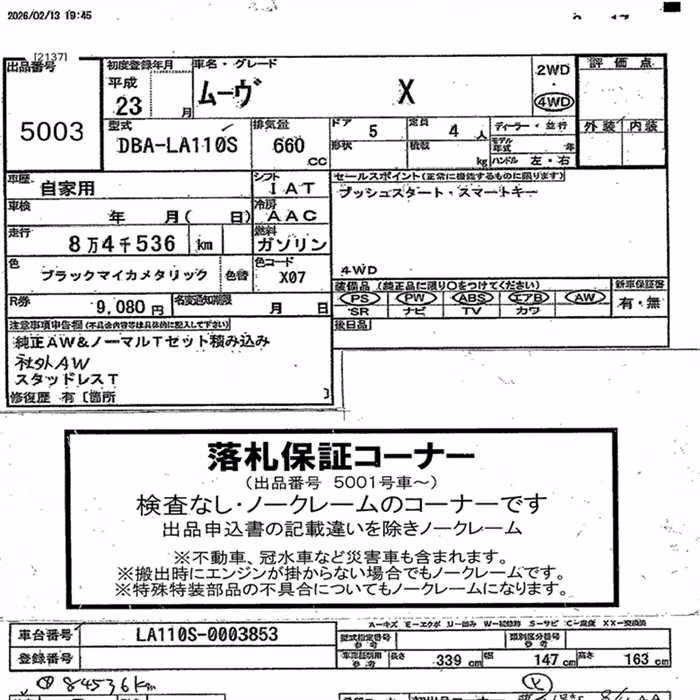 2026/02/13 19:45
[2137]
出品番号
5003
初度登録年月
平成
23 月
車名・グレード
ムーヴ X
2WD
・
4WD
評価点
外装 内装
型式
DBA-LA110S
排気量
660
CC
ドア 5
定員 4 人
形状
積載 kg
ディーラー・並行
モデル年式 年
ハンドル 左・右
車歴 自家用
シフト
IAT
セールスポイント(正常に機能するものに限ります)
プッシュスタート・スマートキー
車検 年 月( 日)
冷房
AAC
走行 8万4千536 km
燃料
ガソリン
色 ブラックマイカメタリック
色替
色コード
X07
4WD
R券 9,080円
名変通知期限 月 日
装備品 (純正品に限り○をつけてください)
PS PW ABS エアB AW
SR ナビ TV カワ
新車保証書
有・無
後日品
注意事項申告欄(不具合内容等は具体的に記入して下さい)
純正AW&ノーマルTセット積み込み
社外AW
スタッドレスT
修復歴 有〔箇所 〕
落札保証コーナー
(出品番号 5001号車~)
検査なし・ノークレームのコーナーです
出品申込書の記載違いを除きノークレーム
※不動車、冠水車など災害車も含まれます。
※搬出時にエンジンが掛からない場合でもノークレームです。
※特殊特装部品の不具合についてもノークレームになります。
A-キズ E-エクボ U-凹み W-補修跡 S-サビ C-腐蝕 XX-交換済
車台番号 LA110S-0003853
型式指定番号
参考
類別区分番号
参考
登録番号
車車検証用
参考
長さ 339 cm
幅 147 cm
高さ 163 cm
① 84536km